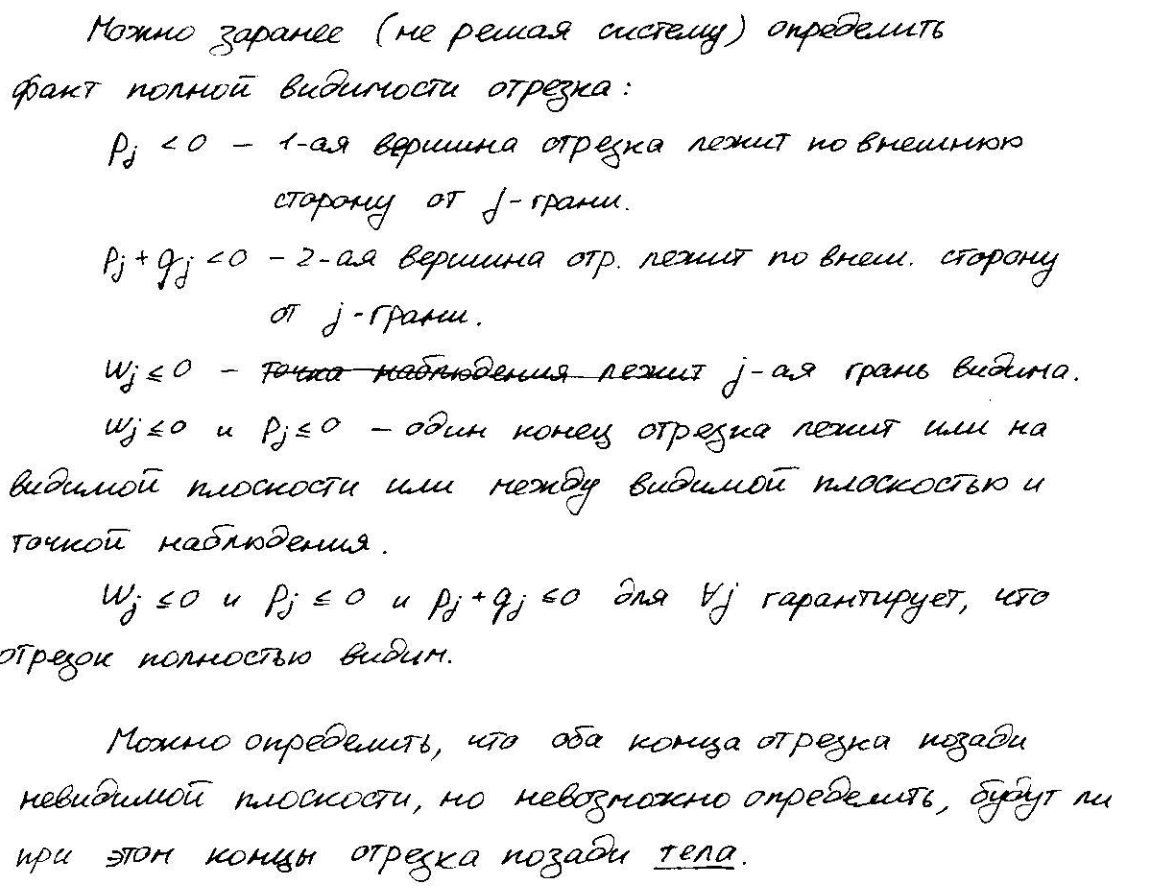 Можно заранее (не решая систему) определить
факт полной видимости отрезка:
pj < 0 – 1-ая вершина отрезка лежит по внешнюю
сторону от j-грани.
pj + qj < 0 – 2-ая вершина отр. лежит по внеш. сторону
от j-грани.
wj ≤ 0 – точка наблюдения лежит j-ая грань видима.
wj ≤ 0 и pj ≤ 0 – один конец отрезка лежит или на
видимой плоскости или между видимой плоскостью и
точкой наблюдения.
wj ≤ 0 и pj ≤ 0 и pj + qj ≤ 0 для ∀j гарантирует, что
отрезок полностью видим.
Можно определить, что оба конца отрезка позади
невидимой плоскости, но невозможно определить, будут ли
при этом концы отрезка позади тела.